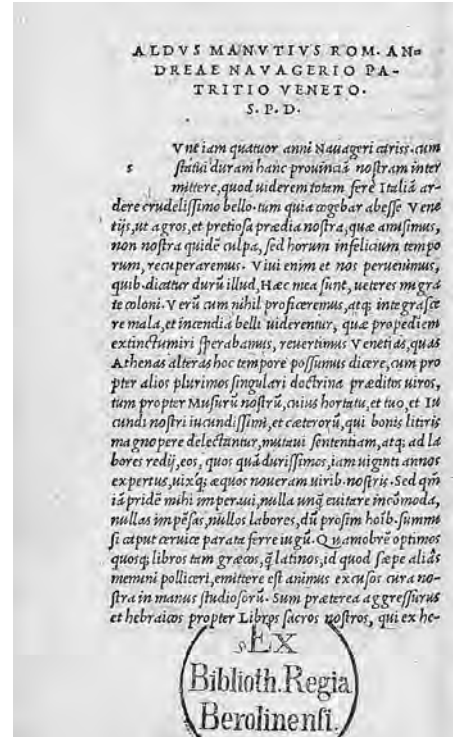 ALDVS MANVTIVS ROM. AN=
DREAE NAVAGERIO PA-
TRITIO VENETO.
S. P. D.
Vnt iam quatuor anni Nauageri cariss. cum
s ſtatui duram hanc prouinciā noſtram inter
mittere, quod uiderem totam ferè Italiā ar-
dere crudeliſſimo bello. tum quia cogebar abeſſe Vene
tijs, ut agros, et pretioſa prædia noſtra, quæ amiſimus,
non noſtra quidē culpa, ſed horum infelicium tempo
rum, recuperaremus. Viui enim et nos peruenimus,
quib. dicatur durū illud, Hæc mea ſunt, ueteres migra
te coloni. Verū cum nihil proficeremus, atq; integraſce
re mala, et incendia belli uiderentur, quæ propediem
extinctumiri ſperabamus, reuertimus Venetias, quas
Athenas alteras hoc tempore poſſumus dicere, cum pro
pter alios plurimos ſingulari doctrina præditos uiros,
tum propter Muſurū noſtrū, cuius hortatu, et tuo, et Iu
cundi noſtri iucundiſſimi, et cæterorū, qui bonis literis
magnopere delectantur, mutaui ſententiam, atq; ad la
bores redij, eos, quos quā duriſſimos, iam uiginti annos
expertus, uixq; æquos noueram uirib. noſtris. Sed qm̄
iā pridē mihi imperaui, nulla unq̄ euitare incōmoda,
nullas impēſas, nullos labores, dū proſim hoīb. ſumme
ſi caput ceruice parata ferre iugū. Quamobrē optimos
quoſq; libros tam græcos, q̄ latinos, id quod ſæpe aliàs
memini polliceri, emittere eſt animus excuſos cura no-
ſtra in manus ſtudioſorū. Sum præterea aggreſſurus
et hebraicos propter Libros ſacros noſtros, qui ex he-
EX
Biblioth. Regia
Berolinenſi.